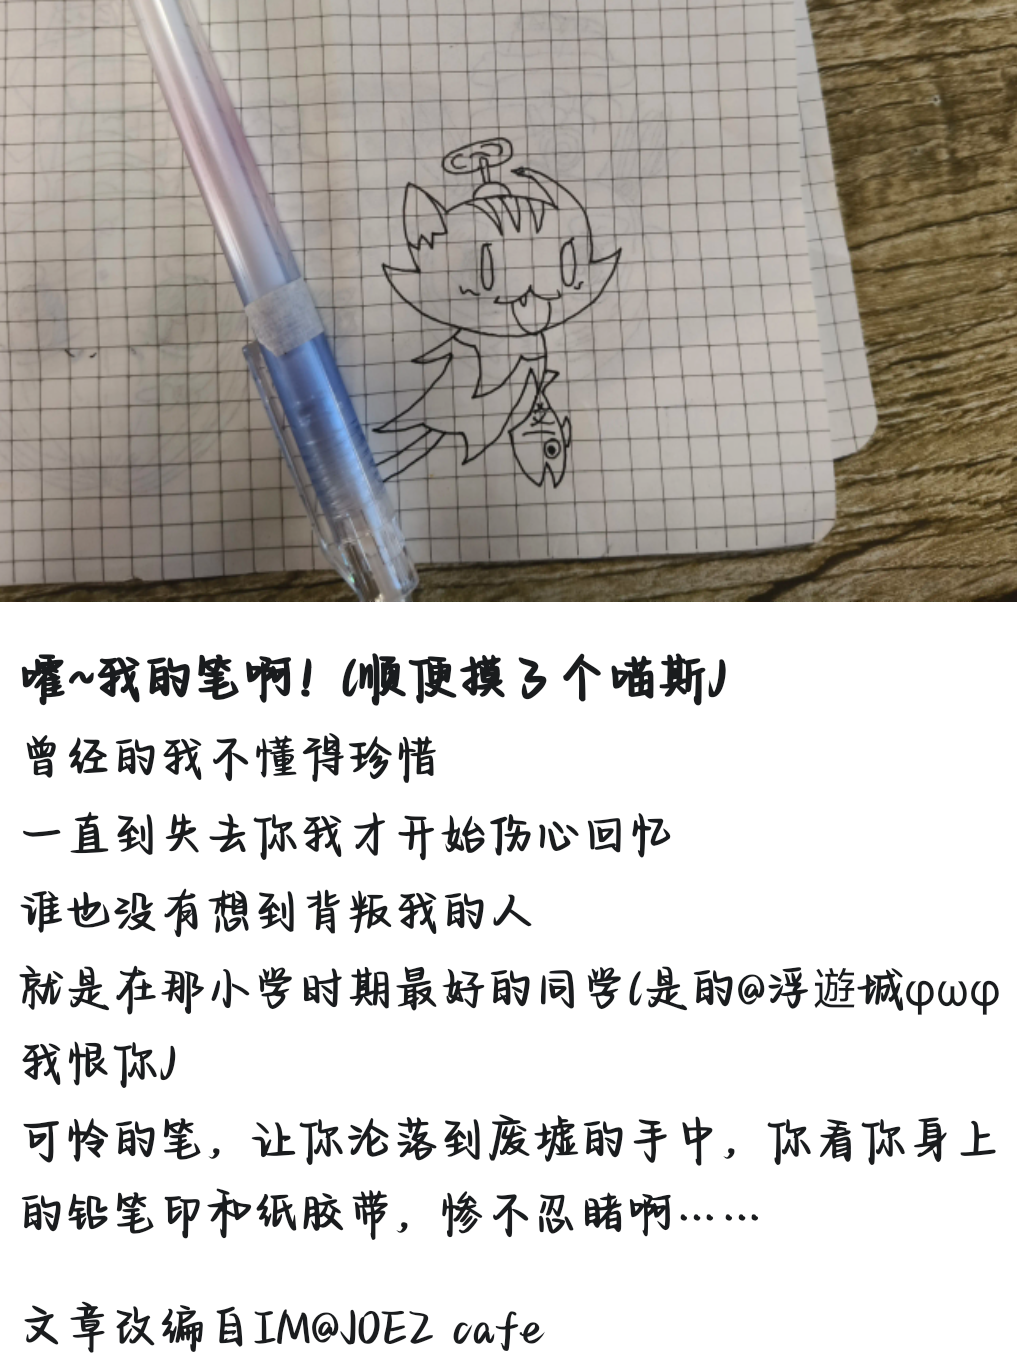 嚯~我的笔啊!(顺便摸了个喵斯)
曾经的我不懂得珍惜
一直到失去你我才开始伤心回忆
谁也没有想到背叛我的人
就是在那小学时期最好的同学(是的@浮遊城φωφ
我恨你)
可怜的笔,让你沦落到废墟的手中,你看你身上
的铅笔印和纸胶带,惨不忍睹啊……
文章改编自IM@JOEZ cafe